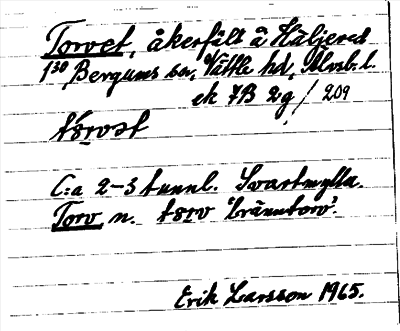 Torvet, åkerfält å Häljered
1³⁰ Bergums sn, Vättle hd, Älvsb. l.
ek 7B 2g / 209
tɔrvət
C:a 2-3 tunnl. Svartmylla.
Torv n. tɔrv 'bränntorv'.
Erik Larsson 1965.